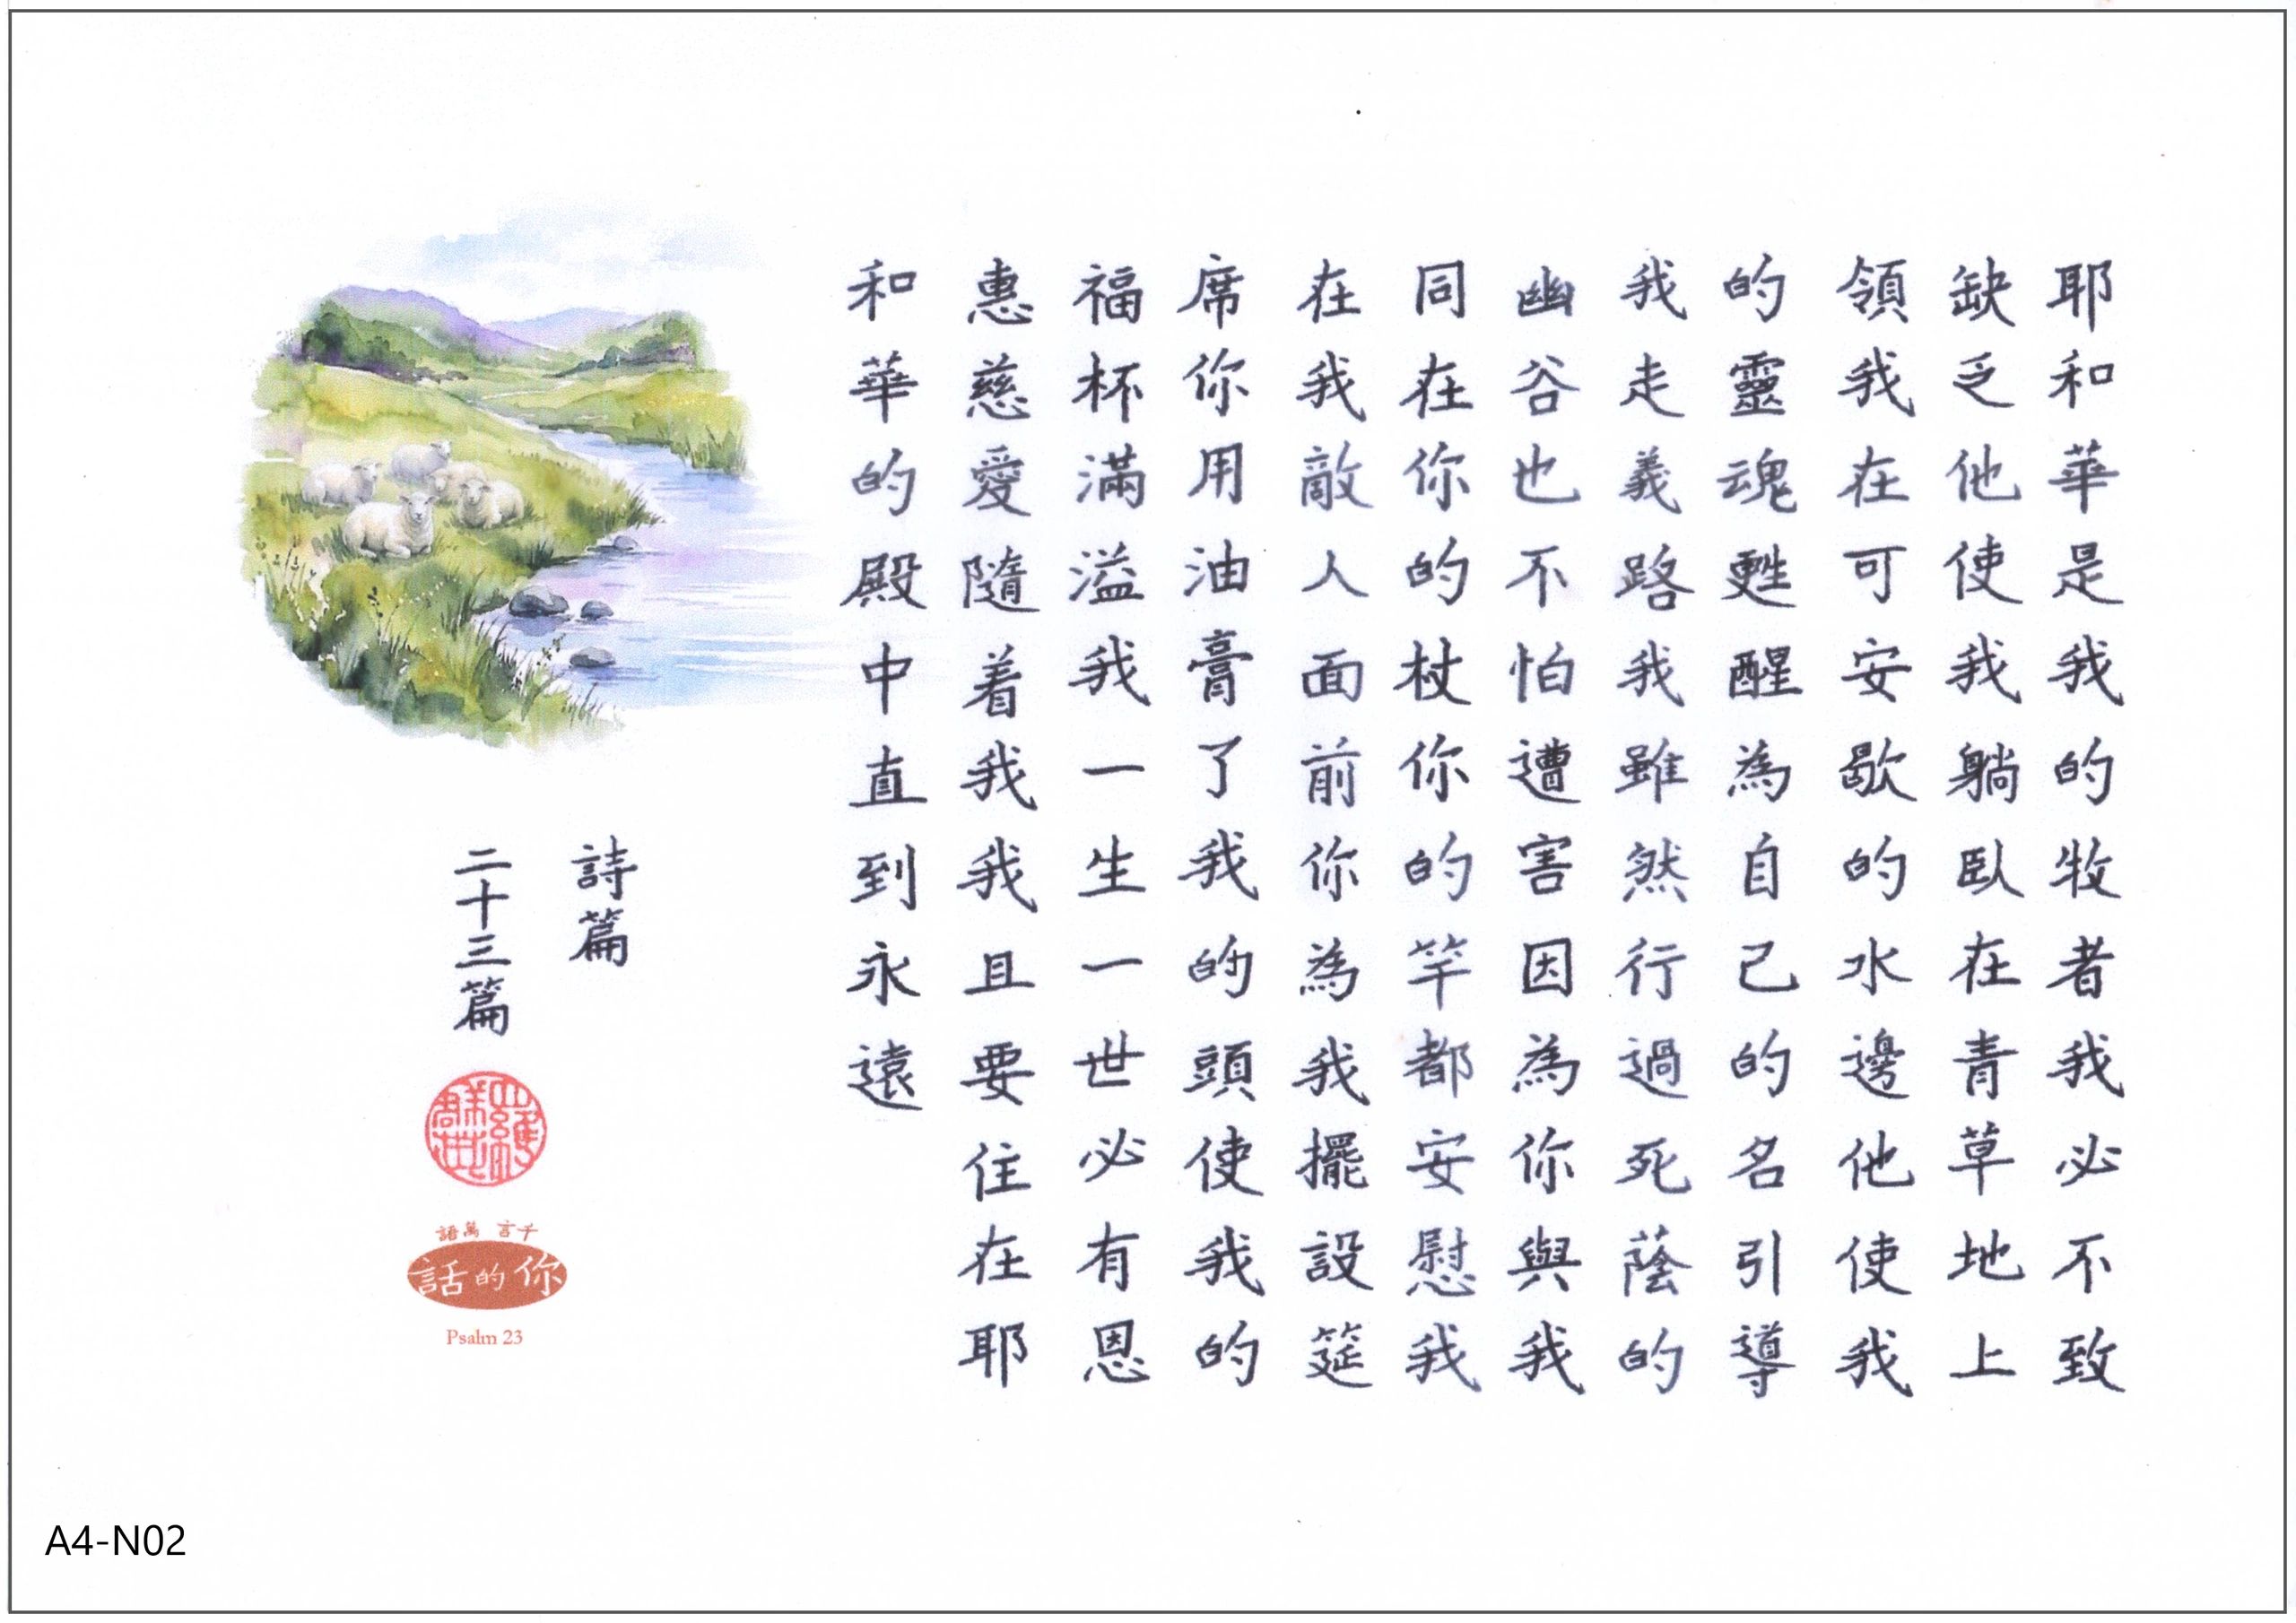 耶和華是我的牧者我必不致
缺乏他使我躺臥在青草地上
領我在可安歇的水邊他使我
的靈魂甦醒為自己的名引導
我走義路我雖然行過死蔭的
幽谷也不怕遭害因為你與我
同在你的杖你的竿都安慰我
在我敵人面前你為我擺設筵
席你用油膏了我的頭使我的
福杯滿溢我一生一世必有恩
惠慈愛隨着我我且要住在耶
和華的殿中直到永遠
詩篇
二十三篇
千言萬語
你的話
Psalm 23
A4-N02